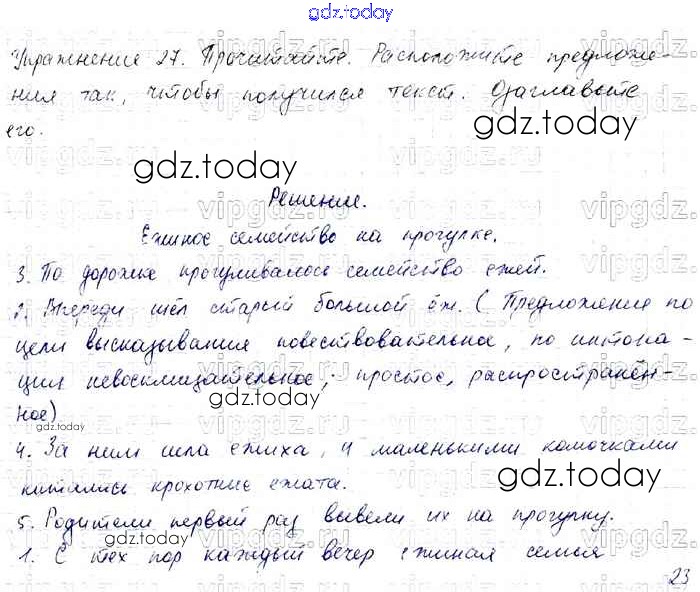 gdz.today
Упражнение 27. Прочитайте. Расположите предложе-
ния так, чтобы получился текст. Озаглавьте
его.
gdz.today
Решение.
Ежиное семейство на прогулке.
3. По дорожке прогуливалось семейство ежей.
2. Впереди шёл старый большой ёж. (Предложение по
цели высказывания повествовательное, по интона-
ции невосклицательное, простое, распространён-
ное)
gdz.today
4. За ним шла ежиха, и маленькими комочками
катились крохотные ежата.
gdz.today
5. Родители первый раз вывели их на прогулку.
1. С тех пор каждый вечер ежиная семья
gdz.today
23